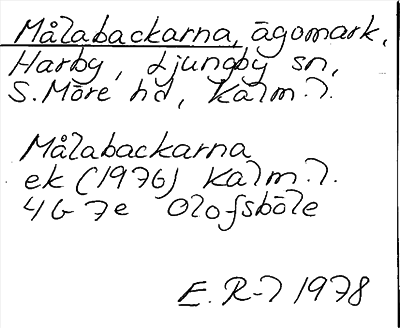 Målabackarna, ägomark,
Harby, Ljungby sn,
S. Möre hd, Kalm. l.
Målabackarna
ek (1976) Kalm. l.
4G 7e Olofsböle
E. R-l 1978